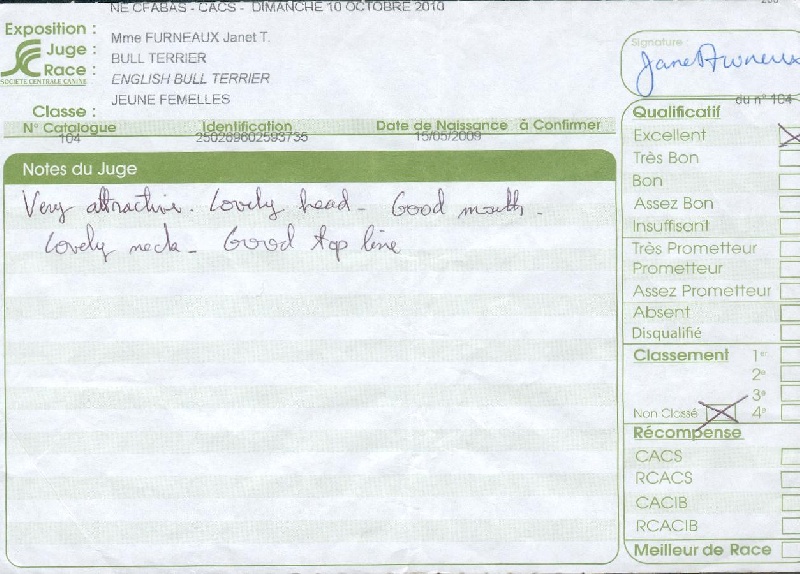 NE CFABAS - CACS - DIMANCHE 10 OCTOBRE 2010
Exposition :
Mme FURNEAUX Janet T.
Juge :
BULL TERRIER
Race :
ENGLISH BULL TERRIER
SOCIÉTÉ CENTRALE CANINE
JEUNE FEMELLES
Classe :
N° Catalogue Identification Date de Naissance à Confirmer
104 250269602593735 15/05/2009
Notes du Juge
Very attractive. Lovely head - Good mouth -
Lovely neck - Good top line
Signature
Janet Furneaux
du n° 104
Qualificatif
Excellent
Très Bon
Bon
Assez Bon
Insuffisant
Très Prometteur
Prometteur
Assez Prometteur
Absent
Disqualifié
Classement 1er
2e
3e
Non Classé 4e
Récompense
CACS
RCACS
CACIB
RCACIB
Meilleur de Race